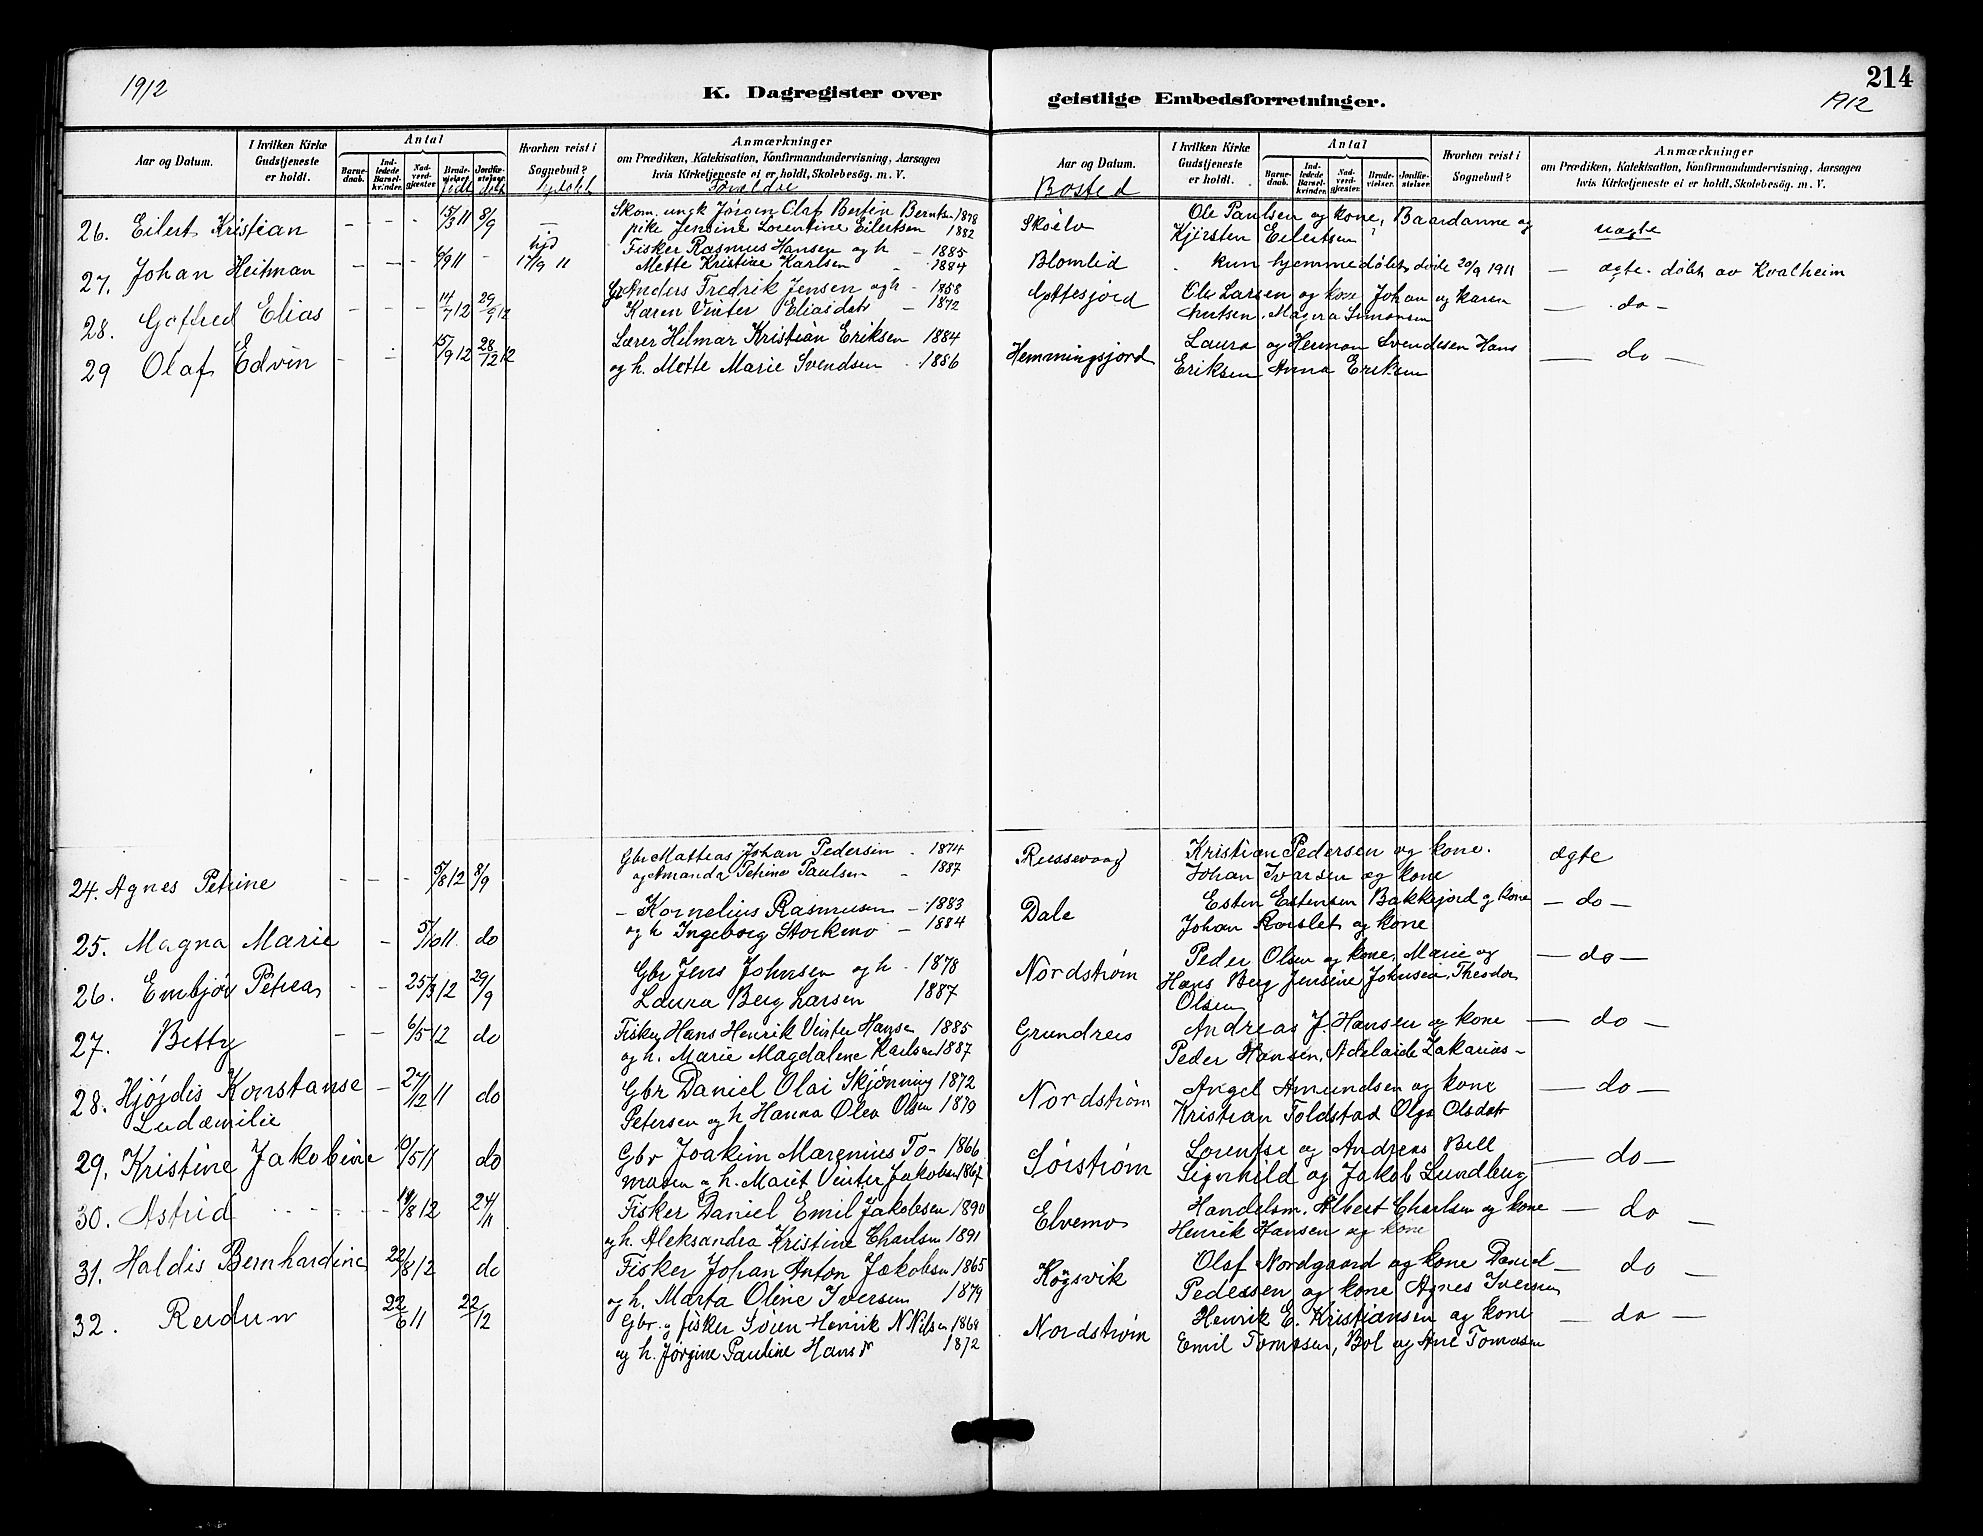 1912
K. Dagregister over
geistlige Embedsforretninger.
214
1912
Aar og Datum.
I hvilken Kirke Gudstjeneste er holdt.
Antal
Barnedaab.
Indledede Barselkvinder.
Nadverdgjæster.
Brudevielser.
Jordfæstelser.
Hvorhen reist i Sognebud?
Anmærkninger
om Prædiken, Katekisation, Konfirmandundervisning, Aarsagen
hvis Kirketjeneste ei er holdt, Skolebesög. m. V.
født døbt hjdøbt Forældre
Aar og Datum.
I hvilken Kirke Gudstjeneste er holdt.
Antal
Barnedaab.
Indledede Barselkvinder.
Nadverdgjæster.
Brudevielser.
Jordfæstelser.
Hvorhen reist i Sognebud?
Anmærkninger
om Prædiken, Katekisation, Konfirmandundervisning, Aarsagen
hvis Kirketjeneste ei er holdt, Skolebesög. m. V.
Bosted
26. Eilert Kristian - - - 15/3 11 8/9 — Skom. ungk Jörgen Olaf Bertin Berntsen 1878
pike Jensine Lorentine Eilertsen 1882
Skøelv Ole Paulsen og kone, Baardanne og
Kjersten Eilertsen uægte
27. Johan Heitman - - - 6/9 11 - hjd 17/9 11 Fisker Rasmus Hansen og h - 1885
Mette Kristine Karlsen - 1884
Blomlid kun hjemmedøbt, døde 20/9 1911 — ægte. døbt av Kvalheim
28. Goffred Elias - - - 14/7 12 29/9 12 Gbr Anders Fredrik Jensen og h - 1858
Karen Vinter Eliasdatr - 1872
Gottesjord Ole Larsen og kone Johan og Karen
Knutsen, Magna Simonsen — do —
29 Olaf Edvin - - 15/9 12 28/12 12 Lærer Hilmar Kristian Eriksen 1884
og h. Mette Marie Svendsen 1886
Hemmingsjord Laura og Herman Svendsen Hans
Eriksen Anna Eriksen — do —
24. Agnes Petrine - - - 5/8 12 8/9 Gbr Mattias Johan Pedersen - 1874
og Amanda Petrine Paulsen - 1887
Russevaag Kristian Pedersen og kone.
Johan Ivarsen og kone ægte
25. Magna Marie - 5/10 11 do - Kornelius Rasmusen - 1883
og h Ingeborg Stockmo - 1884
Dale Esten Estensen Bakkejord og kone
Johan Rorslet og kone — do —
26. Embjør Petrea - - 25/3 12 29/9 Gbr Jens Johnsen og h. 1878
Laura Berg Larsen 1887
Nordstrøm Peder Olsen og kone, Marie og
Hans Berg Jensine Johnsen, Theodor
Olsen — do —
27. Betty - - 6/5 12 do Fisker Hans Henrik Vinter Hansen 1885
og h. Marie Magdalene Karlsen 1887
Grundreis Andreas J. Hansen og kone
Peder Hansen, Adelaide Zakarias- — do —
28. Hjørdis Konstanse - 27/12 11 do
Ludæmilie
Gbr Daniel Olai Skjønning 1872
Petersen og h Hanna Olea Olsen 1879
Nordstrøm Angel Amundsen og kone
Kristian Toldstad Olga Olsdatr — do —
29. Kristine Jakobine 10/5 11 do Gbr Joakim Marenius To- 1866
masen og h. Maret Vinter Jakobsen 1867
Sørstrøm Lorentse og Andreas Bell
Signhild og Jakob Lundberg — do —
30. Astrid - - - - 14/8 12 24/11 Fisker Daniel Emil Jakobsen 1890
og h. Aleksandra Kristine Charlsen 1891
Elvemo Handelsm. Albert Charlsen og kone
Henrik Hansen og kone — do —
31. Haldis Bernhardine 22/8 12 do Fisker Johan Anton Jakobsen 1865
og h. Marta Oline Iversen 1879
Høgsvik Olaf Nordgaard og kone Daniel
Pedersen og kone Agnes Iversen — do —
32. Reidun 22/6 11 22/12 Gbr. og fisker Søren Henrik N. Nilsen 1868
og h. Jørgine Pauline Hansdr 1872
Nordstrøm Henrik E. Kristiansen og kone
Emil Tomasen, Bol og Ane Tomasen — do —